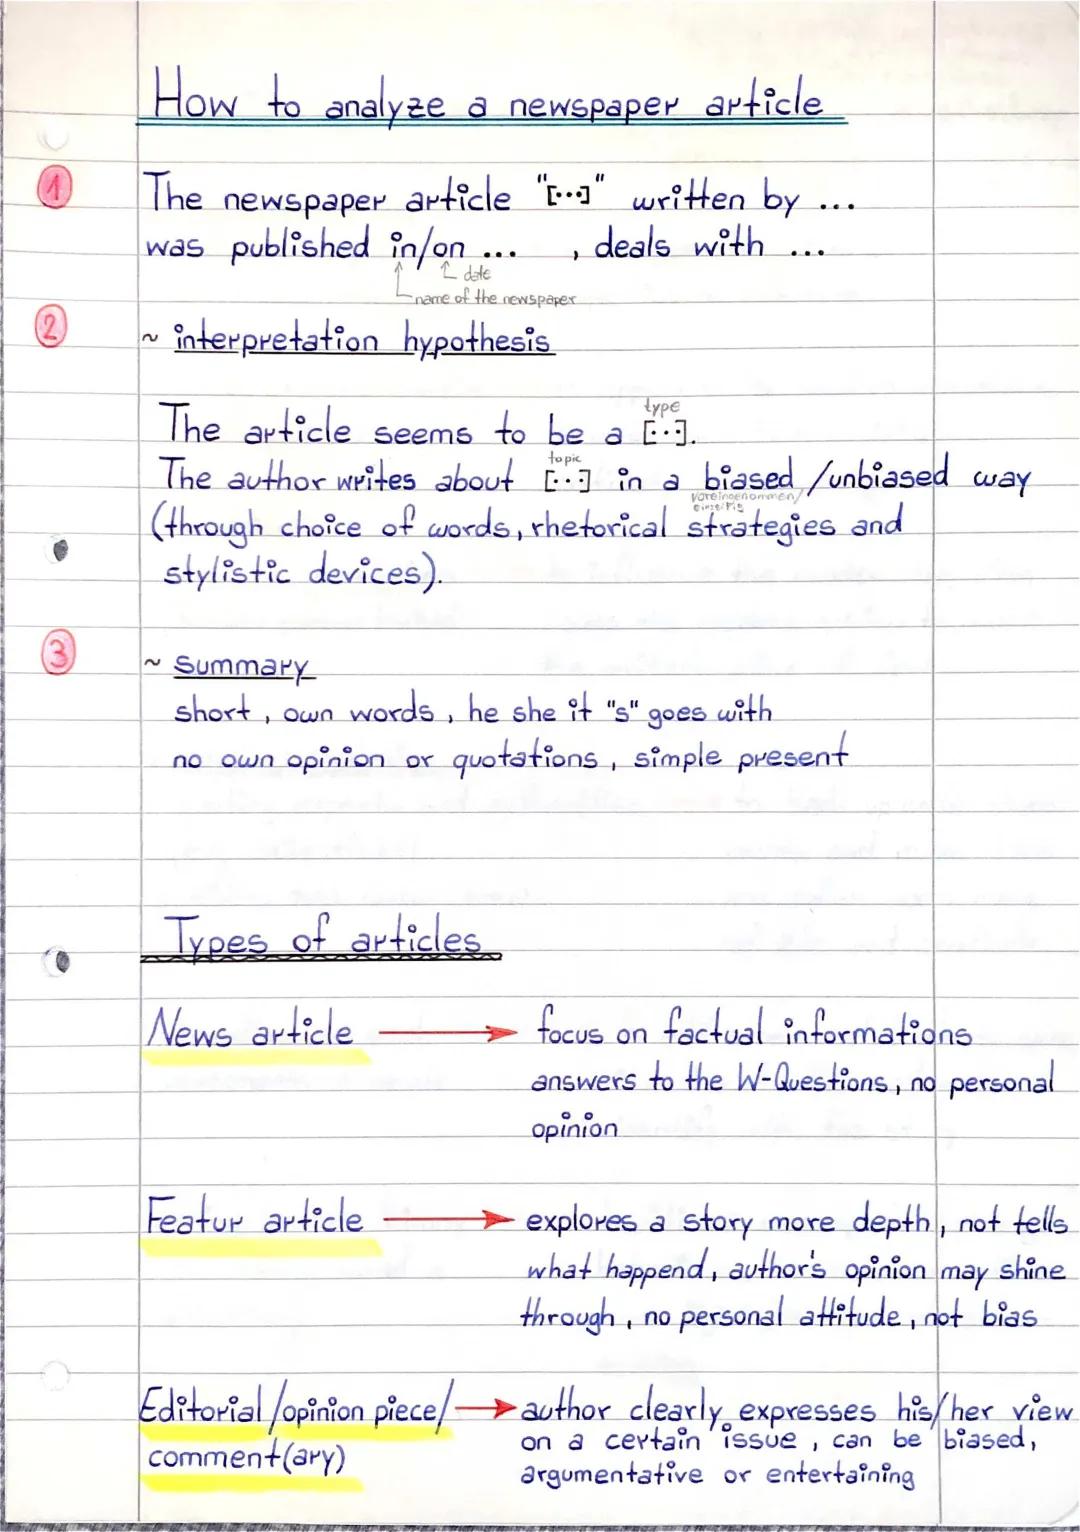 How to analyze a newspaper article
1
The newspaper article "[...]" written by ...
was published in/on ... , deals with ...
date
name of the newspaper
2
~ interpretation hypothesis
type
The article seems to be a [...].
topic
The author writes about [...] in a biased/unbiased way
voreingenommen/
(through choice of words, rhetorical strategies and
stylistic devices).
3
~ Summary
short, own words, he she it "s" goes with
no own opinion or quotations, simple present
Types of articles
News article → focus on factual informations
answers to the W-Questions, no personal
opinion
Featur article → explores a story more depth, not tells
what happend, author's opinion may shine
through, no personal attitude, not bias
Editorial/opinion piece/ → author clearly expresses his/her view
comment(ary) on a certain issue, can be biased,
argumentative or entertaining